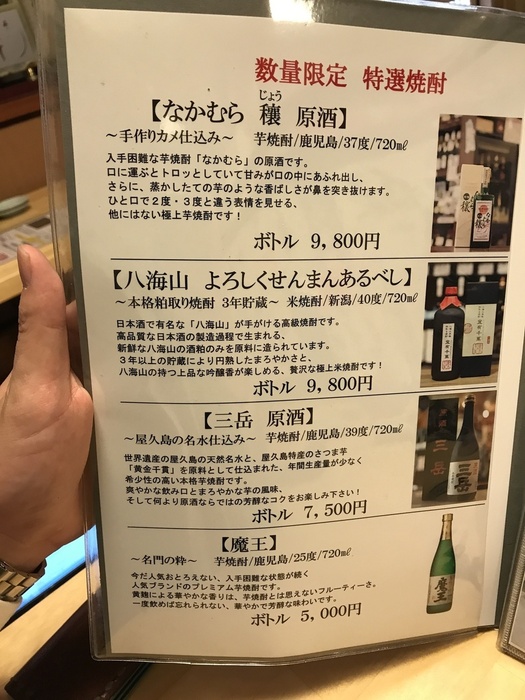 数量限定 特選焼酎
じょう
【なかむら 穣 原酒】
～手作りカメ仕込み～ 芋焼酎/鹿児島/37度/720㎖
入手困難な芋焼酎「なかむら」の原酒です。
口に運ぶとトロッとしていて甘みが口の中にあふれ出し、
さらに、蒸かしたての芋のような香ばしさが鼻を突き抜けます。
ひと口で２度・３度と違う表情を見せる、
他にはない極上芋焼酎です！
ボトル 9,800円
【八海山 よろしくせんまんあるべし】
～本格粕取り焼酎 3年貯蔵～ 米焼酎/新潟/40度/720㎖
日本酒で有名な「八海山」が手がける高級焼酎です。
高品質な日本酒の製造過程で生まれる、
新鮮な八海山の酒粕のみを原料に造られています。
３年以上の貯蔵により円熟したまろやかさと、
八海山の持つ上品な吟醸香が楽しめる、贅沢な極上米焼酎です！
ボトル 9,800円
【三岳 原酒】
～屋久島の名水仕込み～ 芋焼酎/鹿児島/39度/720㎖
世界遺産の屋久島の天然名水と、屋久島特産のさつま芋
「黄金千貫」を原料として仕込まれた、年間生産量が少なく
希少性の高い本格芋焼酎です。
爽やかな飲み口とまろやかな芋の風味、
そして何より原酒ならではの芳醇なコクをお楽しみ下さい！
ボトル 7,500円
三岳
三岳
【魔王】
～名門の粋～ 芋焼酎/鹿児島/25度/720㎖
今だ人気おとろえない、入手困難な状態が続く
人気ブランドのプレミアム芋焼酎です。
黄麹による華やかな香りは、芋焼酎とは思えないフルーティーさ。
一度飲めば忘れられない、華やかで芳醇な味わいです。
ボトル 5,000円
魔王